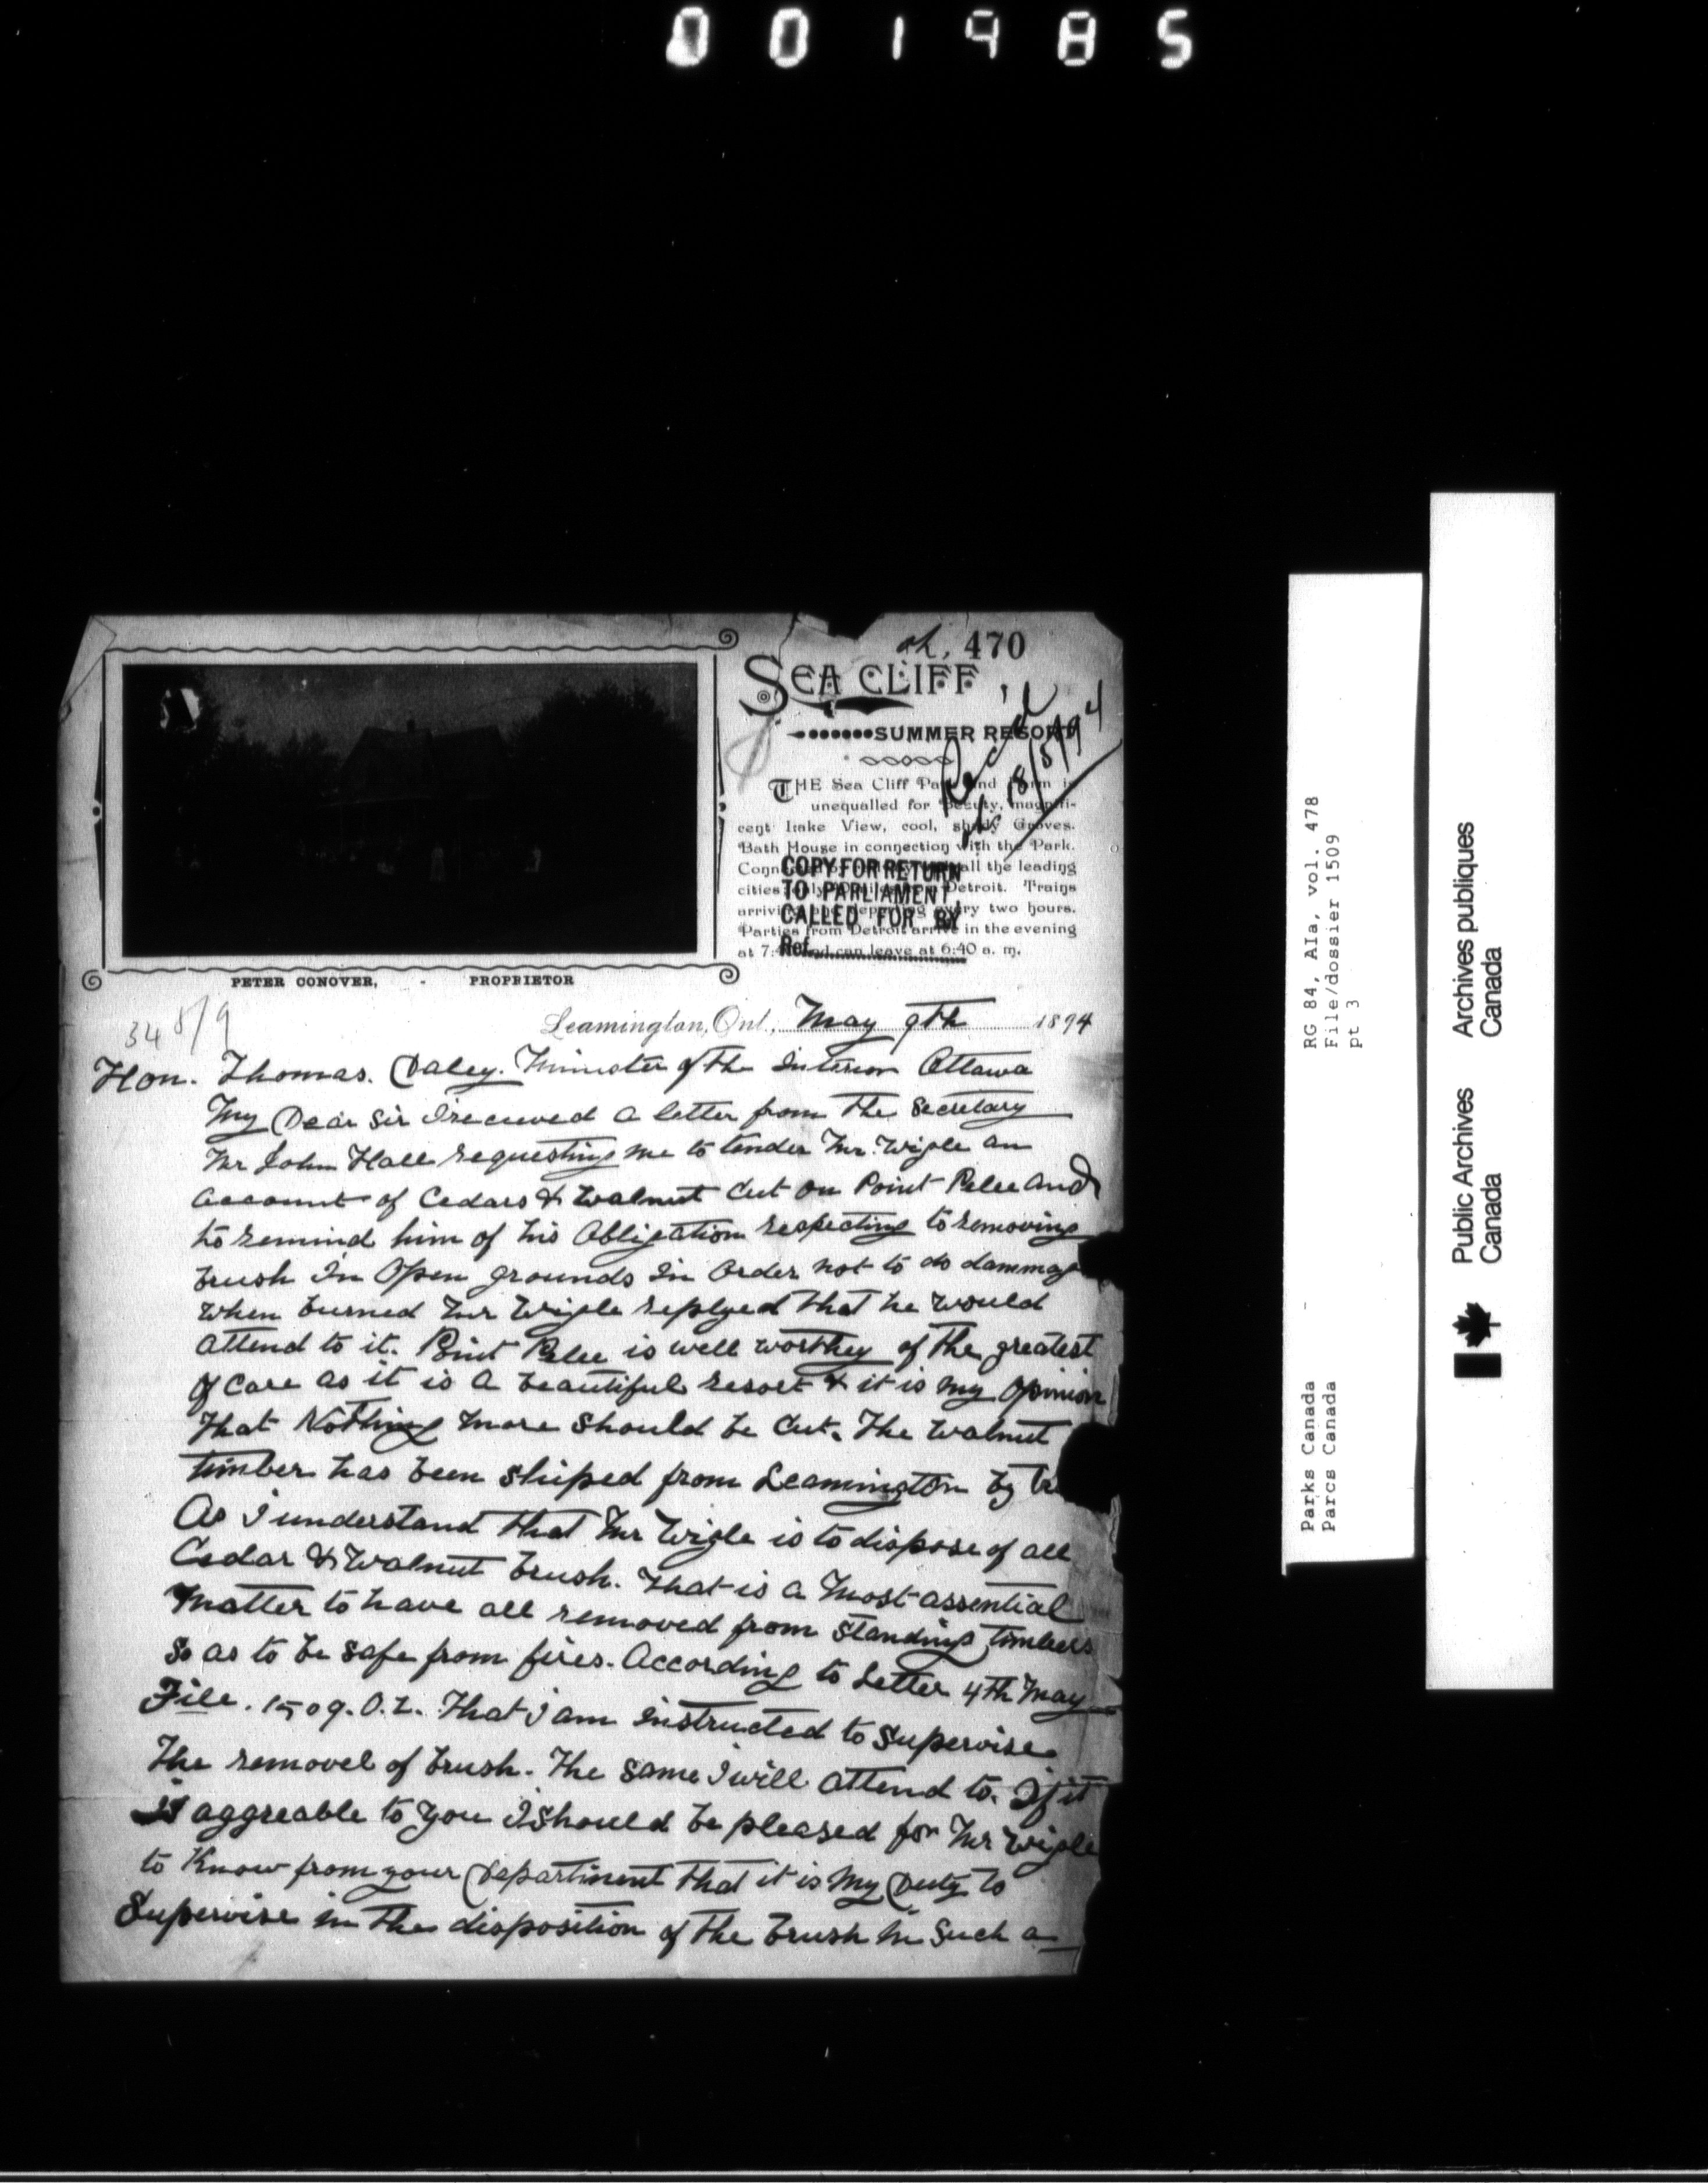 001985
ok, 470
SEA CLIFF
SUMMER RESORT
Rec'd
18/5/94
THE Sea Cliff Park and Farm is
unequalled for beauty, magnifi-
cent Lake View, cool, shady Groves.
Bath House in connection with the Park.
all the leading
cities, Detroit. Trains
arriving and departing every two hours.
Parties from Detroit arrive in the evening
at 7: and can leave at 6:40 a. m.
COPY FOR RETURN
TO PARLIAMENT,
CALLED FOR BY
Ref.
PETER CONOVER, - PROPRIETOR
34819
Leamington, Ont., May 9th 1894
Hon. Thomas. Daley. Minister of the Interion Ottawa
My Dear Sir I recieved a letter from the Secretary
Mr John Hall requesting me to tender Mr. Wigle an
account of Cedars & Walnut Cut on Point Pelee and
to remind him of his Obligation respecting to removing
brush In Open grounds In Order not to do dammag
when burned Mr Wigle replyed that he would
attend to it. Point Pelee is well worthey of the greatest
of Care as it is a beautiful resort & it is my Opinion
that Nothing more should be Cut. The walnut
timber has been shiped from Leamington by
As I understand that Mr Wigle is to dispose of all
Cedar & Walnut brush. that is a most assential
Matter to have all removed from standing timbers
so as to be safe from fires. According to Letter 4th May
File. 1509. O.L. That I am instructed to Supervise
the removel of brush. The same I will attend to. If it
is aggreable to you I should be pleased for Mr Wigle
to Know from your Department that it is My Duty to
Supervise in the disposition of the brush in Such a
Parks Canada - RG 84, AIa, vol. 478
Parcs Canada File/dossier 1509
pt 3
Public Archives Archives publiques
Canada Canada